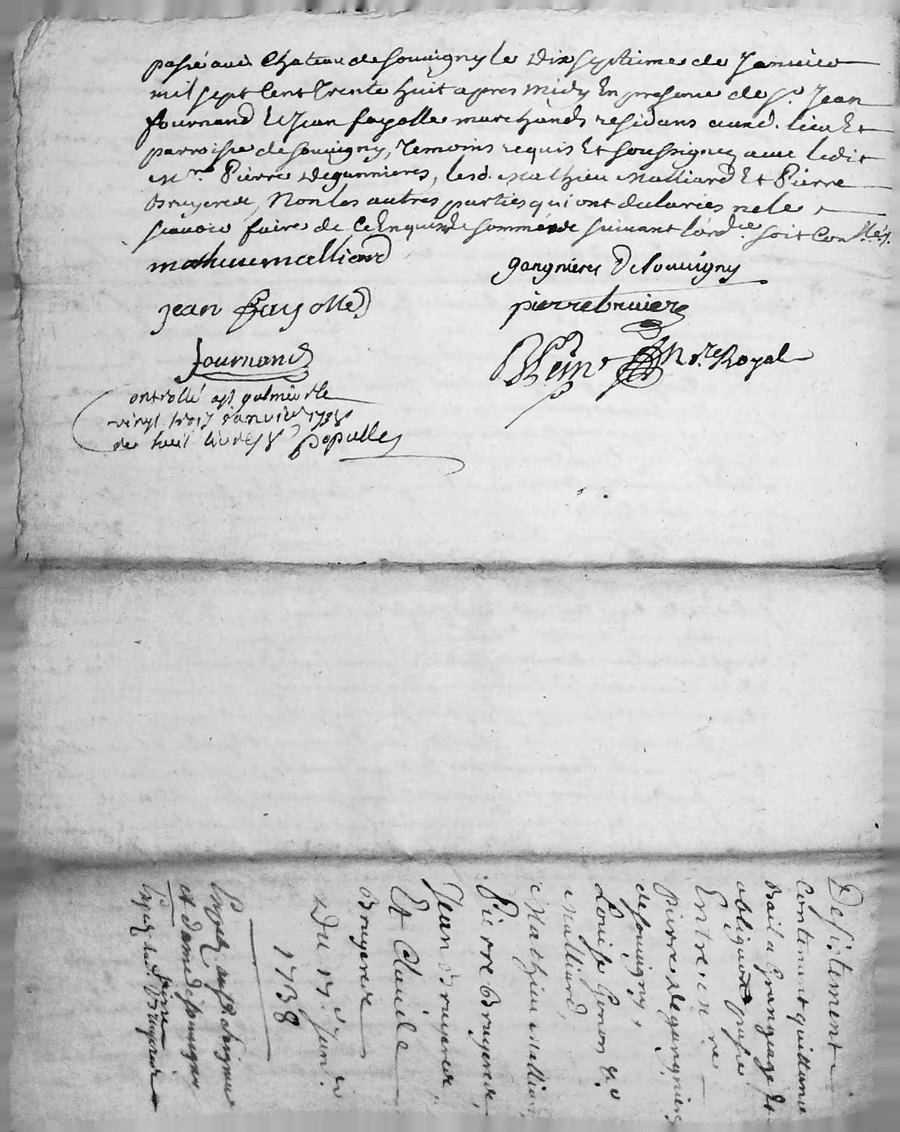 passé audi. Chateau de souvigny le dix septieme de Janvier
mil sept Cent Trente huit apres midy En presence de Sr. Jean
fournand Et Jean fayolle marchands residans aud. lieu Et
parroisse de souvigny, Temoins requis Et soussignez avec ledit
Mre. Pierre Degannieres, lesd. Mathieu Malliard Et Pierre
Bruyere, Non les autres parties qui ont declarées ne le
scavoir faire de Ce Enquis Et sommés suivant l'ord.ce soit Con.lé
mathieu malliard
gangnieres De souvigny
jean Fayolle
pierre bruiere
fournand
N.re Royal
Controllé a St galmier le
vingt trois janvier 1738
de huit livres
Desistement
Contenant quittance
Bail a Grangeage Et
obligaon passé
Entre m.re
Pierre Degangnieres
de souvigny,
Louise Gonon &
Malliard,
Mathieu Mallian
Pierre Bruyere,
Jean Bruyere,
Et Claude
Bruyere
Du 17 Janv.
1738
et dame de